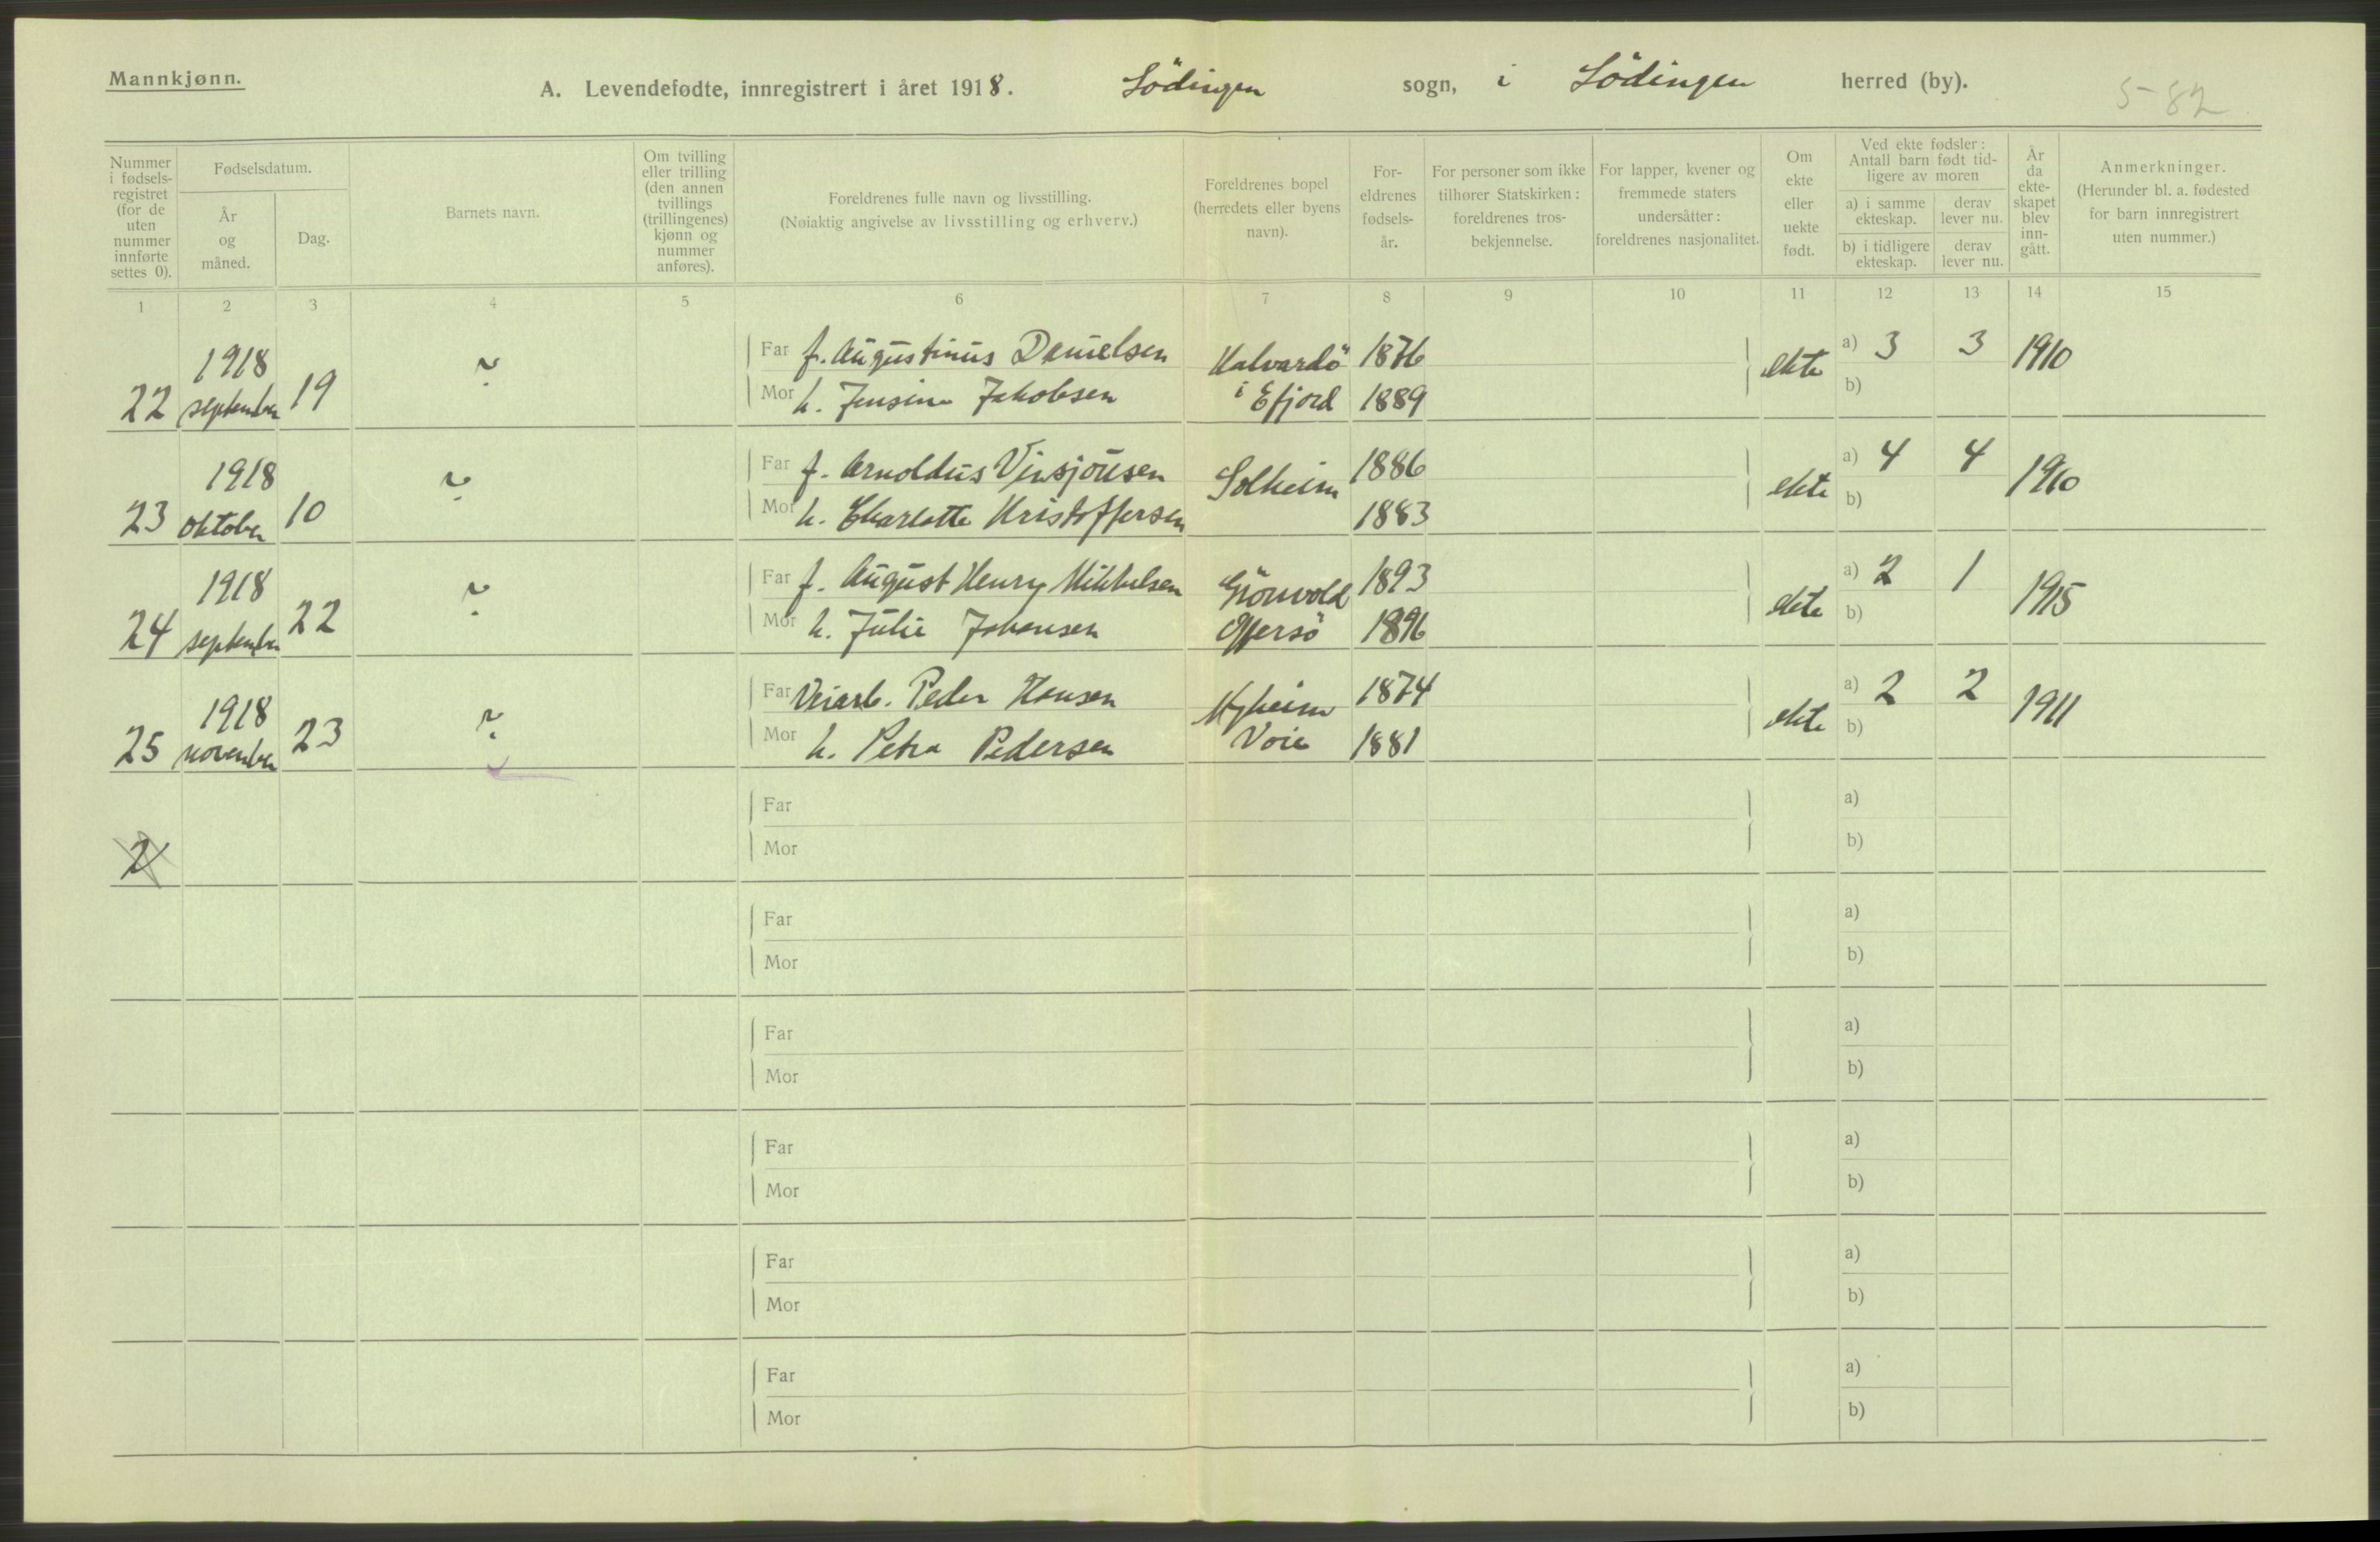 Mannkjønn.
A. Levendefødte, innregistrert i året 1918. Lödingen sogn, i Lödingen herred (by).
5-82
Nummer i fødselsregistret (for de uten nummer innførte settes 0).
Fødselsdatum.
År og måned.
Dag.
Barnets navn.
Om tvilling eller trilling (den annen tvillings (trillingenes) kjønn og nummer anføres).
Foreldrenes fulle navn og livsstilling.
(Nøiaktig angivelse av livsstilling og erhverv.)
Foreldrenes bopel (herredets eller byens navn).
Foreldrenes fødselsår.
For personer som ikke tilhører Statskirken: foreldrenes trosbekjennelse.
For lapper, kvener og fremmede staters undersåtter: foreldrenes nasjonalitet.
Om ekte eller uekte født.
Ved ekte fødsler: Antall barn født tidligere av moren
a) i samme ekteskap.
derav lever nu.
b) i tidligere ekteskap.
derav lever nu.
År da ekteskapet blev inngått.
Anmerkninger.
(Herunder bl. a. fødested for barn innregistrert uten nummer.)
1 2 3 4 5 6 7 8 9 10 11 12 13 14 15
22 1918 september 19 ? Far f. Augustinus Danielsen Halvardö i Efjord 1876 ekte a) 3 3 1910
Mor h. Jensine Jakobsen 1889 b)
23 1918 oktober 10 ? Far f. Arnoldus Vinsjousen Solheim 1886 ekte a) 4 4 1910
Mor h. Charlotte Kristoffersen 1883 b)
24 1918 september 22 ? Far f. August Henry Mikkelsen Grönvold Offersö 1893 ekte a) 2 1 1915
Mor h. Julie Johansen 1896 b)
25 1918 november 23 ? Far Veiarb. Peder Hansen Myheim Voie 1874 ekte a) 2 2 1911
Mor h. Petra Pedersen 1881 b)
2 Far a)
Mor b)
Far a)
Mor b)
Far a)
Mor b)
Far a)
Mor b)
Far a)
Mor b)
Far a)
Mor b)